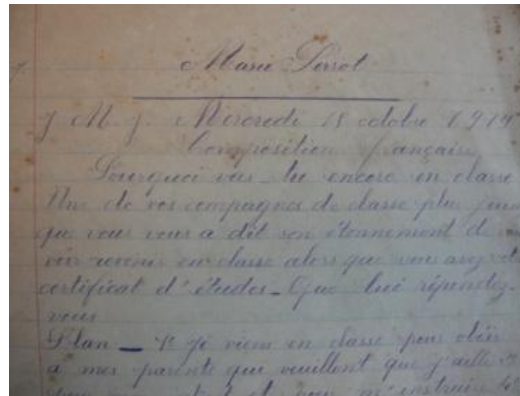 Marie Perrot
J. M. J. Mercredi 18 octobre 191
Composition française
Pourquoi vas-tu encore en classe
Une de vos compagnes de classe plus jeune
que vous vous a dit son étonnement de vous
voir revenir en classe alors que vous avez votre
certificat d'études_ Que lui répondez-
vous
Plan _ 1º Je viens en classe pour obéir
à mes parents que veuillent que j'aille
m'instruire